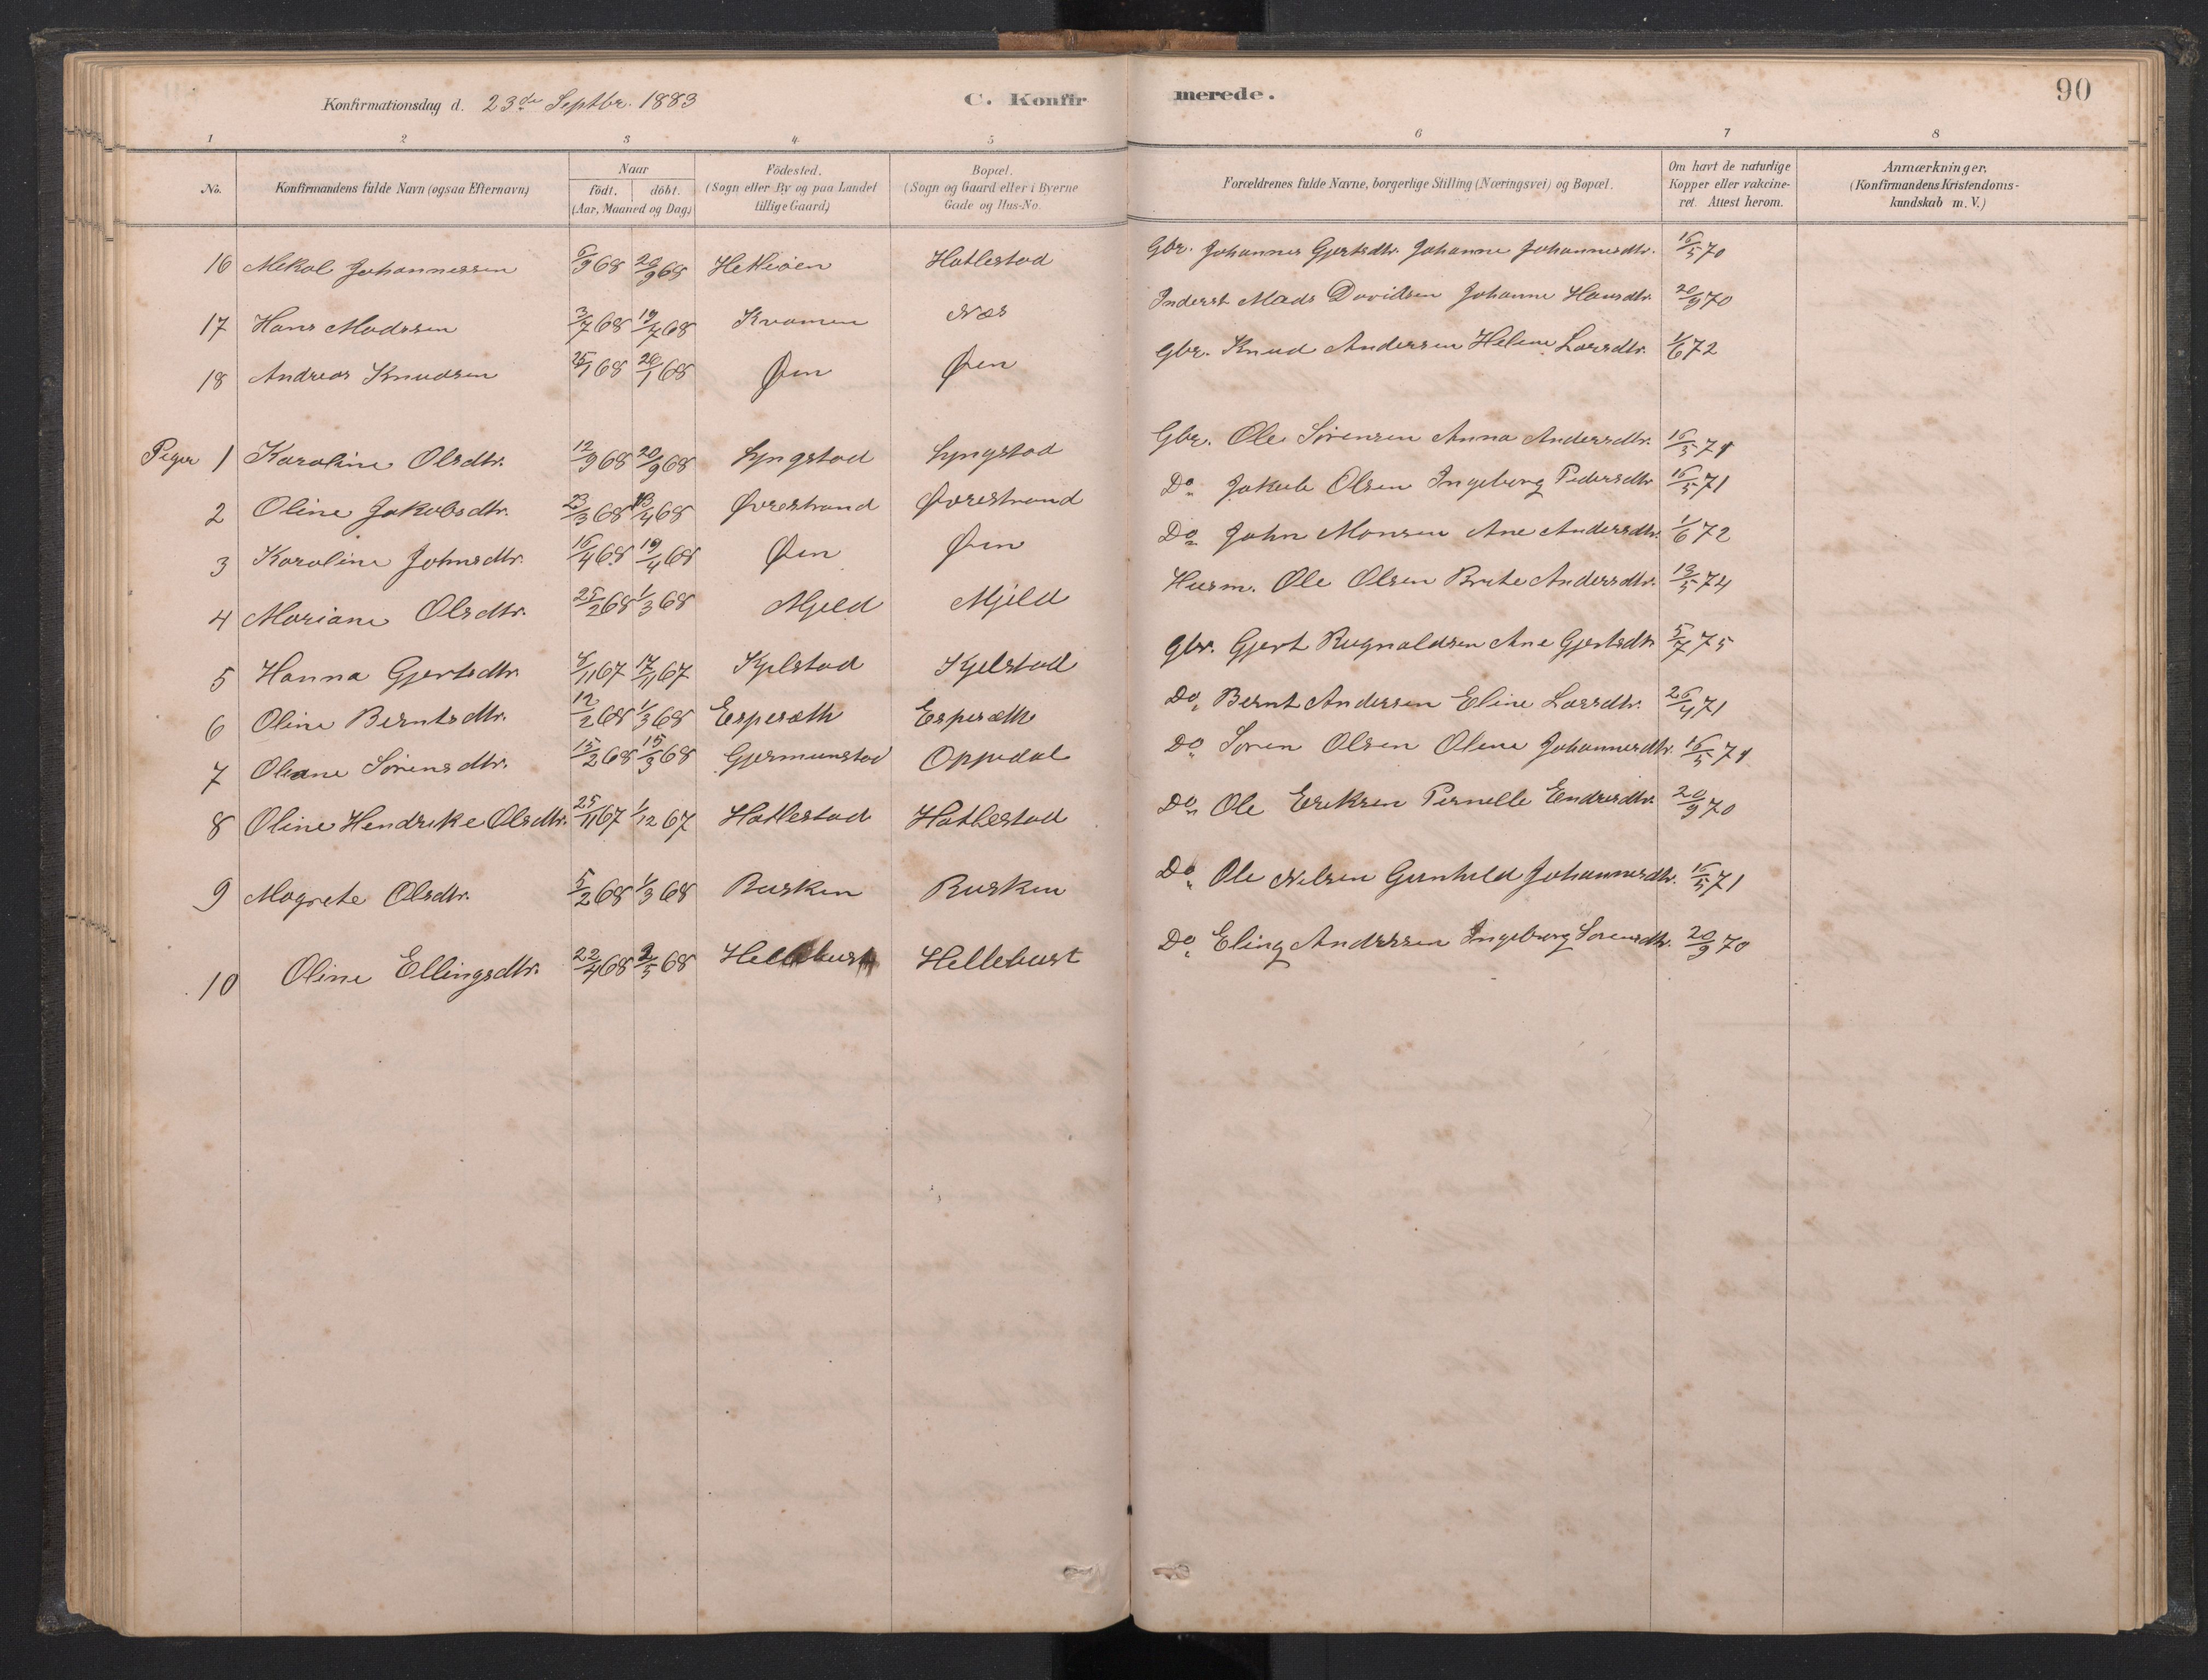 Konfirmationsdag d. 23de Septbr. 1883 C. Konfirmerede. 90
1 2 3 4 5 6 7 8
No. Konfirmandens fulde Navn (ogsaa Efternavn) Naar födt. döbt. (Aar, Maaned og Dag.) Födested. (Sogn eller By og paa Landet tillige Gaard) Bopæl. (Sogn og Gaard eller i Byerne Gade og Hus-No. Forældrenes fulde Navne, borgerlige Stilling (Næringsvei) og Bopæl. Om havt de naturlige Kopper eller vakcineret. Attest herom. Anmærkninger. (Konfirmandens Kristendomskundskab m. V.)
16 Mikal Johannessen 6/9 68 20/9 68 Hatlestad Gbr. Johannes Gjertsdtr. Johanne Johannesdtr. 16/5 70
17 Hans Madssen 3/7 68 19/7 68 Kvamen Næs Inderst Mads Davidsen Johanne Hansdtr. 20/9 70
18 Andreas Knudsen 25/1 68 26/1 68 Øen Øen Gbr. Knud Andersen Helene Larsdtr. 1/6 72
Piger 1 Karoline Olsdtr. 12/9 68 20/9 68 Lyngstad Lyngstad Gbr. Ole Sørensen Anna Andersdtr. 16/5 71
2 Oline Jakobsdtr. 23/3 68 13/4 68 Øvrestrand Øvrestrand Do Jakob Olsen Ingeborg Pedersdtr. 16/5 71
3 Karoline Johnsdtr. 16/4 68 19/4 68 Øen Øen Do John Monsen Ane Andersdtr. 1/6 72
4 Mariane Olsdtr. 25/2 68 1/3 68 Mjeld Mjeld Husm. Ole Olsen Brite Andersdtr. 13/5 74
5 Hanna Gjertsdtr. 8/11 67 17/11 67 Kjelstad Kjelstad Gbr. Gjert Rognaldsen Ane Gjertsdtr. 5/7 75
6 Oline Berntsdtr. 12/2 68 1/3 68 Esperæth Esperæth Do Bernt Andersen Eline Larsdtr. 26/4 71
7 Oleane Sørensdtr. 15/2 68 15/3 68 Gjermunstad Oppedal Do Søren Olsen Olene Johannesdtr. 16/5 71
8 Oline Hendrike Olsdtr. 25/11 67 1/12 67 Hatlestad Hatlestad Do Ole Eriksen Pernelle Endresdtr. 20/9 70
9 Magrete Olsdtr. 5/2 68 1/3 68 Rusken Rusken Do Ole Nilsen Gunhild Johannesdtr. 16/5 71
10 Oline Ellingsdtr. 22/4 68 2/5 68 Hellebust Hellebust Do Eling Andersen Ingeborg Sørensdtr. 20/9 70